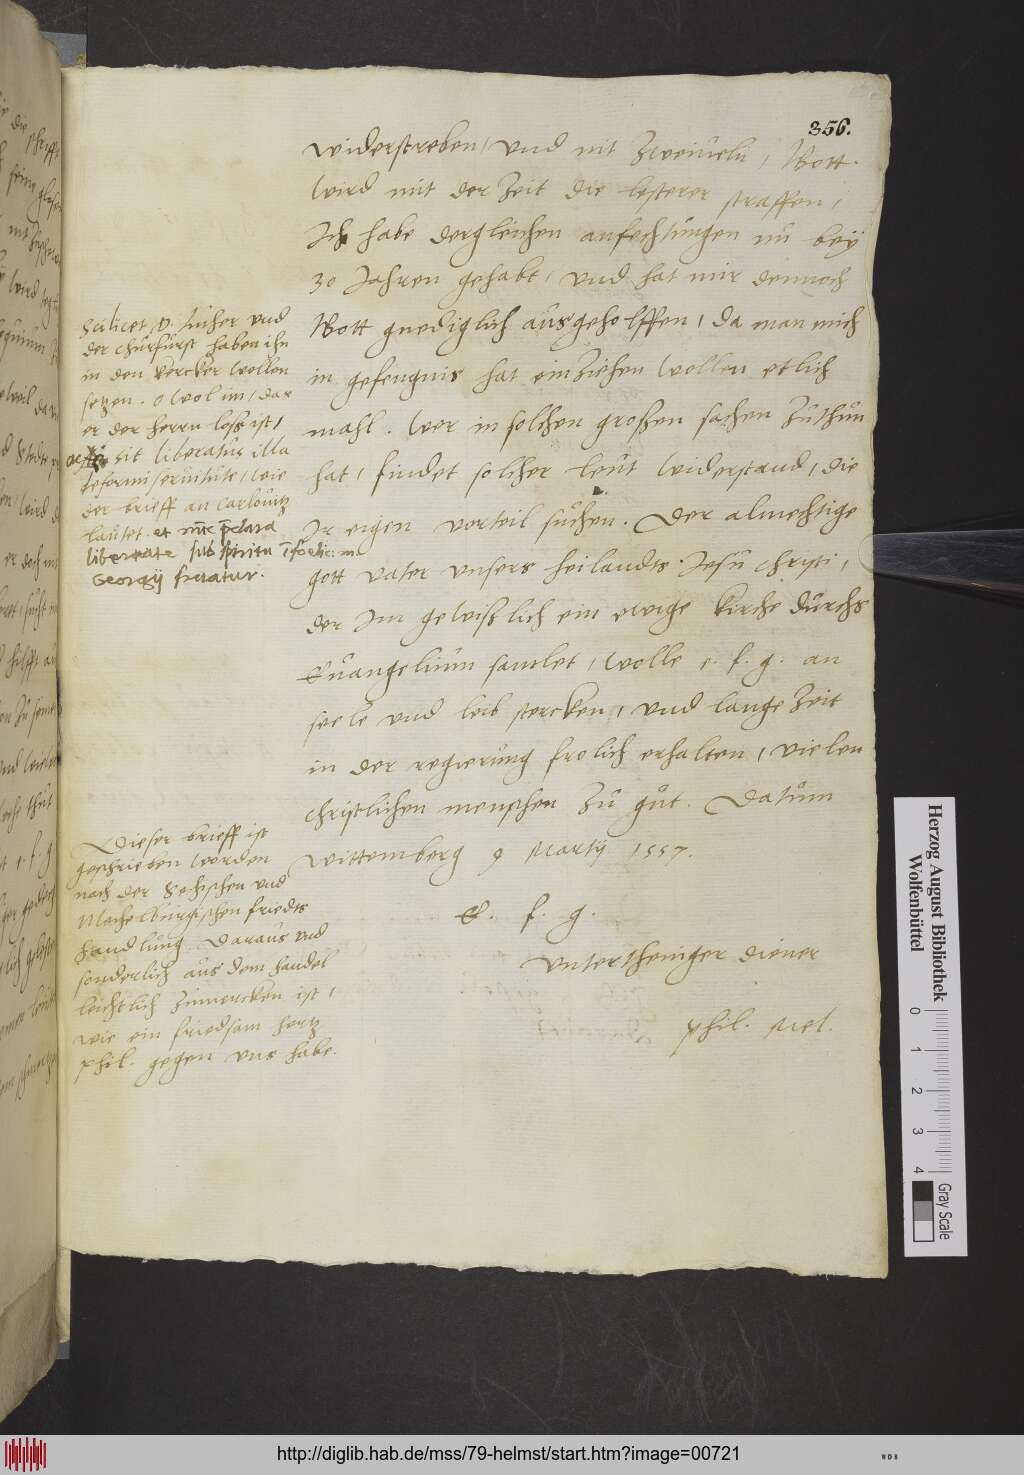 356.
widerstreben, und nit zweiueln, Gott
wird mit der zeit die lesterer straffen,
Ich habe dergleichen anfechtungen nu bey
30 Jahren gehabt, und hat mir dennoch
Gott gnediglich ausgeholffen, da man mich
in gefengnis hat einziehen wollen etlich
mahl. wer in solchen großen sachen zuthun
hat, findet solcher leut widerstand, die
Ir eigen vorteil suchen. Der almechtige
gott vater unsers heilandts Jesu Christi,
der Im gewißlich ein ewige kirche durchs
Euangelium samlet, wolle e. f. g. an
seele und leib stercken, und lange zeit
in der regierung frolich erhalten, vielen
christlichen menschen zu gut. Datum
Wittemberg 9 Martij 1557.
E. f. g.
untertheniger diener
Phil. Mel.
Scilicet, D. Luther und
der Churfurst haben ihn
in den kercker wollen
setzen. o wol im, das
er der herrn loß ist,
sit liberatus illa
deformi seruitute, wie
der brieff an Carlouitz
lautet. et nunc
libertate sub spiritu
Georgij fruatur.
Dieser brieff ist
geschrieben worden
nach der Sechsischen und
Mechelburgischen friedts
handlung. Daraus und
sonderlich aus dem handel
leichtlich zumercken ist,
wie ein friedsam hertz
Phil. gegen uns habe.
Herzog August Bibliothek
Wolfenbüttel
0 1 2 3 4
Gray Scale
http://diglib.hab.de/mss/79-helmst/start.htm?image=00721
WDB